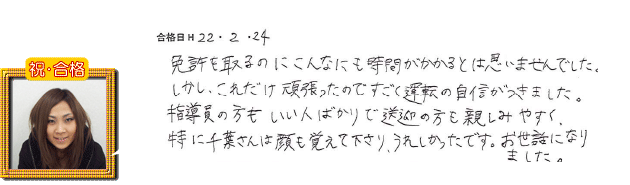 合格日 H 22・2・24
祝・合格
免許を取るのにこんなにも時間がかかるとは思いませんでした。
しかし、これだけ頑張ったのですごく運転の自信がつきました。
指導員の方もいい人ばかりで送迎の方も親しみやすく、
特に千葉さんは顔も覚えて下さり、うれしかったです。お世話になり
ました。